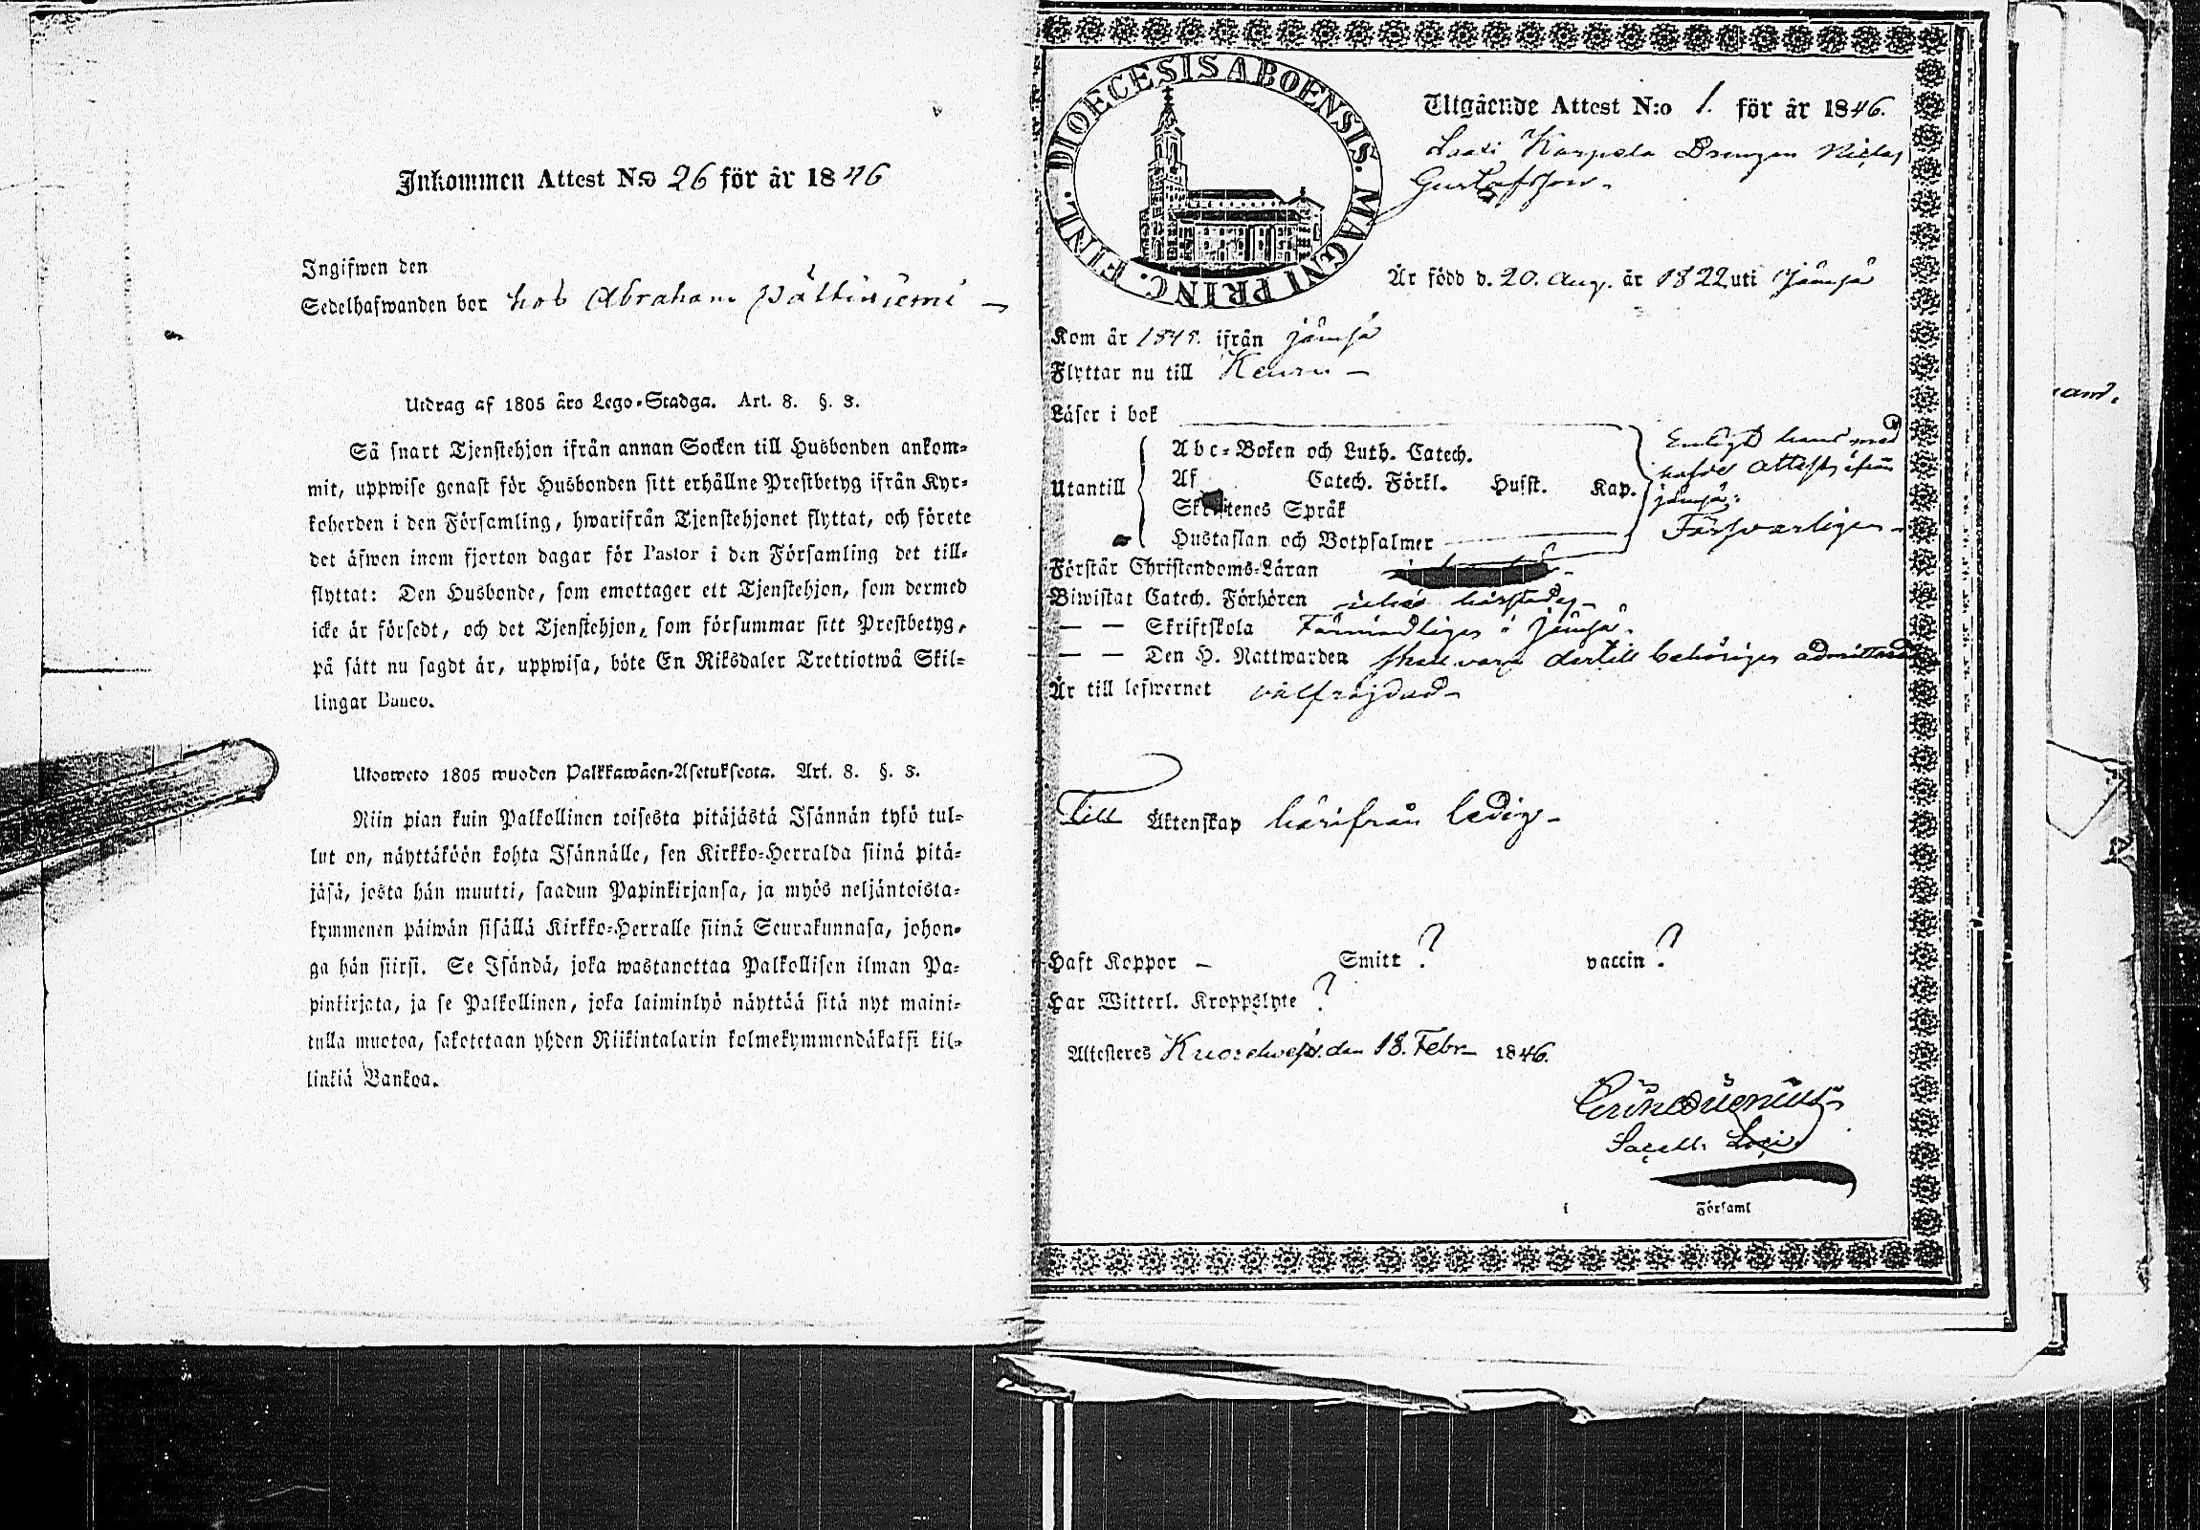 Inkommen Attest N:o 26 för år 1846
Ingifwen den
Sedelhafwanden bor hos Abraham Pältiniemi
Utdrag af 1805 års Lego-Stadga. Art. 8. §. 3.
Så snart Tjenstehjon ifrån annan Socken till Husbonden ankom-
mit, uppwise genast för Husbonden sitt erhållne Prestbetyg ifrån Kyr-
koherden i den Församling, hwarifrån Tjenstehjonet flyttat, och förete
det äfwen inom fjorton dagar för Pastor i den Församling det till-
flyttat: Den Husbonde, som emottager ett Tjenstehjon, som dermed
icke är försedt, och det Tjenstehjon, som försummar sitt Prestbetyg,
på sätt nu sagdt är, uppwisa, böte En Riksdaler Trettiotwå Skil-
lingar Banco.
Utosweto 1805 wuoden Palkkawäen-Asetuksesta. Art. 8. §. 3.
Niin pian kuin Palkollinen toisesta pitäjästä Isännän tykö tul-
lut on, näyttäköön kohta Isännälle, sen Kirkko-Herralda siinä pitä-
jäsä, josta hän muutti, saadun Papinkirjansa, ja myös neljäntoista-
kymmenen päiwän sisällä Kirkko-Herralle siinä Seurakunnasa, johon-
ga hän siirsi. Se Isändä, joka wastanottaa Palkollisen ilman Pa-
pinkirjata, ja se Palkollinen, joka laiminlyö näyttää sitä nyt maini-
tulla muotoa, sakotetaan yhden Riikintalarin kolmekymmendäkaksi kil-
linkiä Bankoa.
DIOECESIS ABOENSIS. MAGNI PRINC. FINL.
Utgående Attest N:o 1. för år 1846.
Karpela Drengen Niclas
Gustafsson
Är född d. 20. Aug. år 1822 uti Jämsä
Kom år 1845. ifrån Jämsä
Flyttar nu till Keuru
Läser i bok
Utantill
Abc-Boken och Luth. Catech.
Af Catech. Förkl. Husst. Kap.
Skriftenes Språk
Hustaflan och Botpsalmer
Enligt hans med
hafde attest ifrån
Jämsä:
Försvarligen
Förstår Christendoms-Läran
Biwistat Catech. Förhören icke härstädes
— — Skriftskola i Jämsä.
— — Den H. Nattwarden skall vara dertill behörigen admitterad
Är till lefwernet välfräjdad
Till Äktenskap härifrån ledig
Haft Koppor — Smitt ? vaccin ?
Har Witterl. Kroppslyte ?
Attesteres Kuorehvesi den 18. Febr. 1846.
Sacell. Loci
i Församl
and.